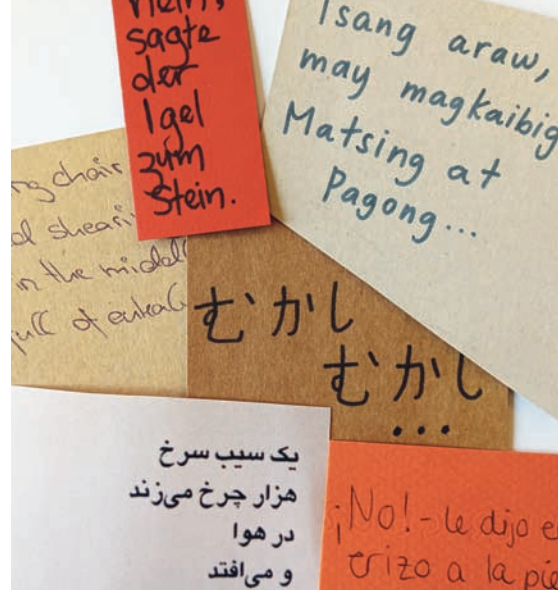 Nein,
sagte
der
Igel
zum
Stein.
Isang araw,
may magkaibig
Matsing at
Pagong...
chair
in the middl
full of
むかし
むかし
...
یک سیب سرخ
هزار چرخ می‌زند
در هوا
و می‌افتد
¡No! - le dijo e
erizo a la pie